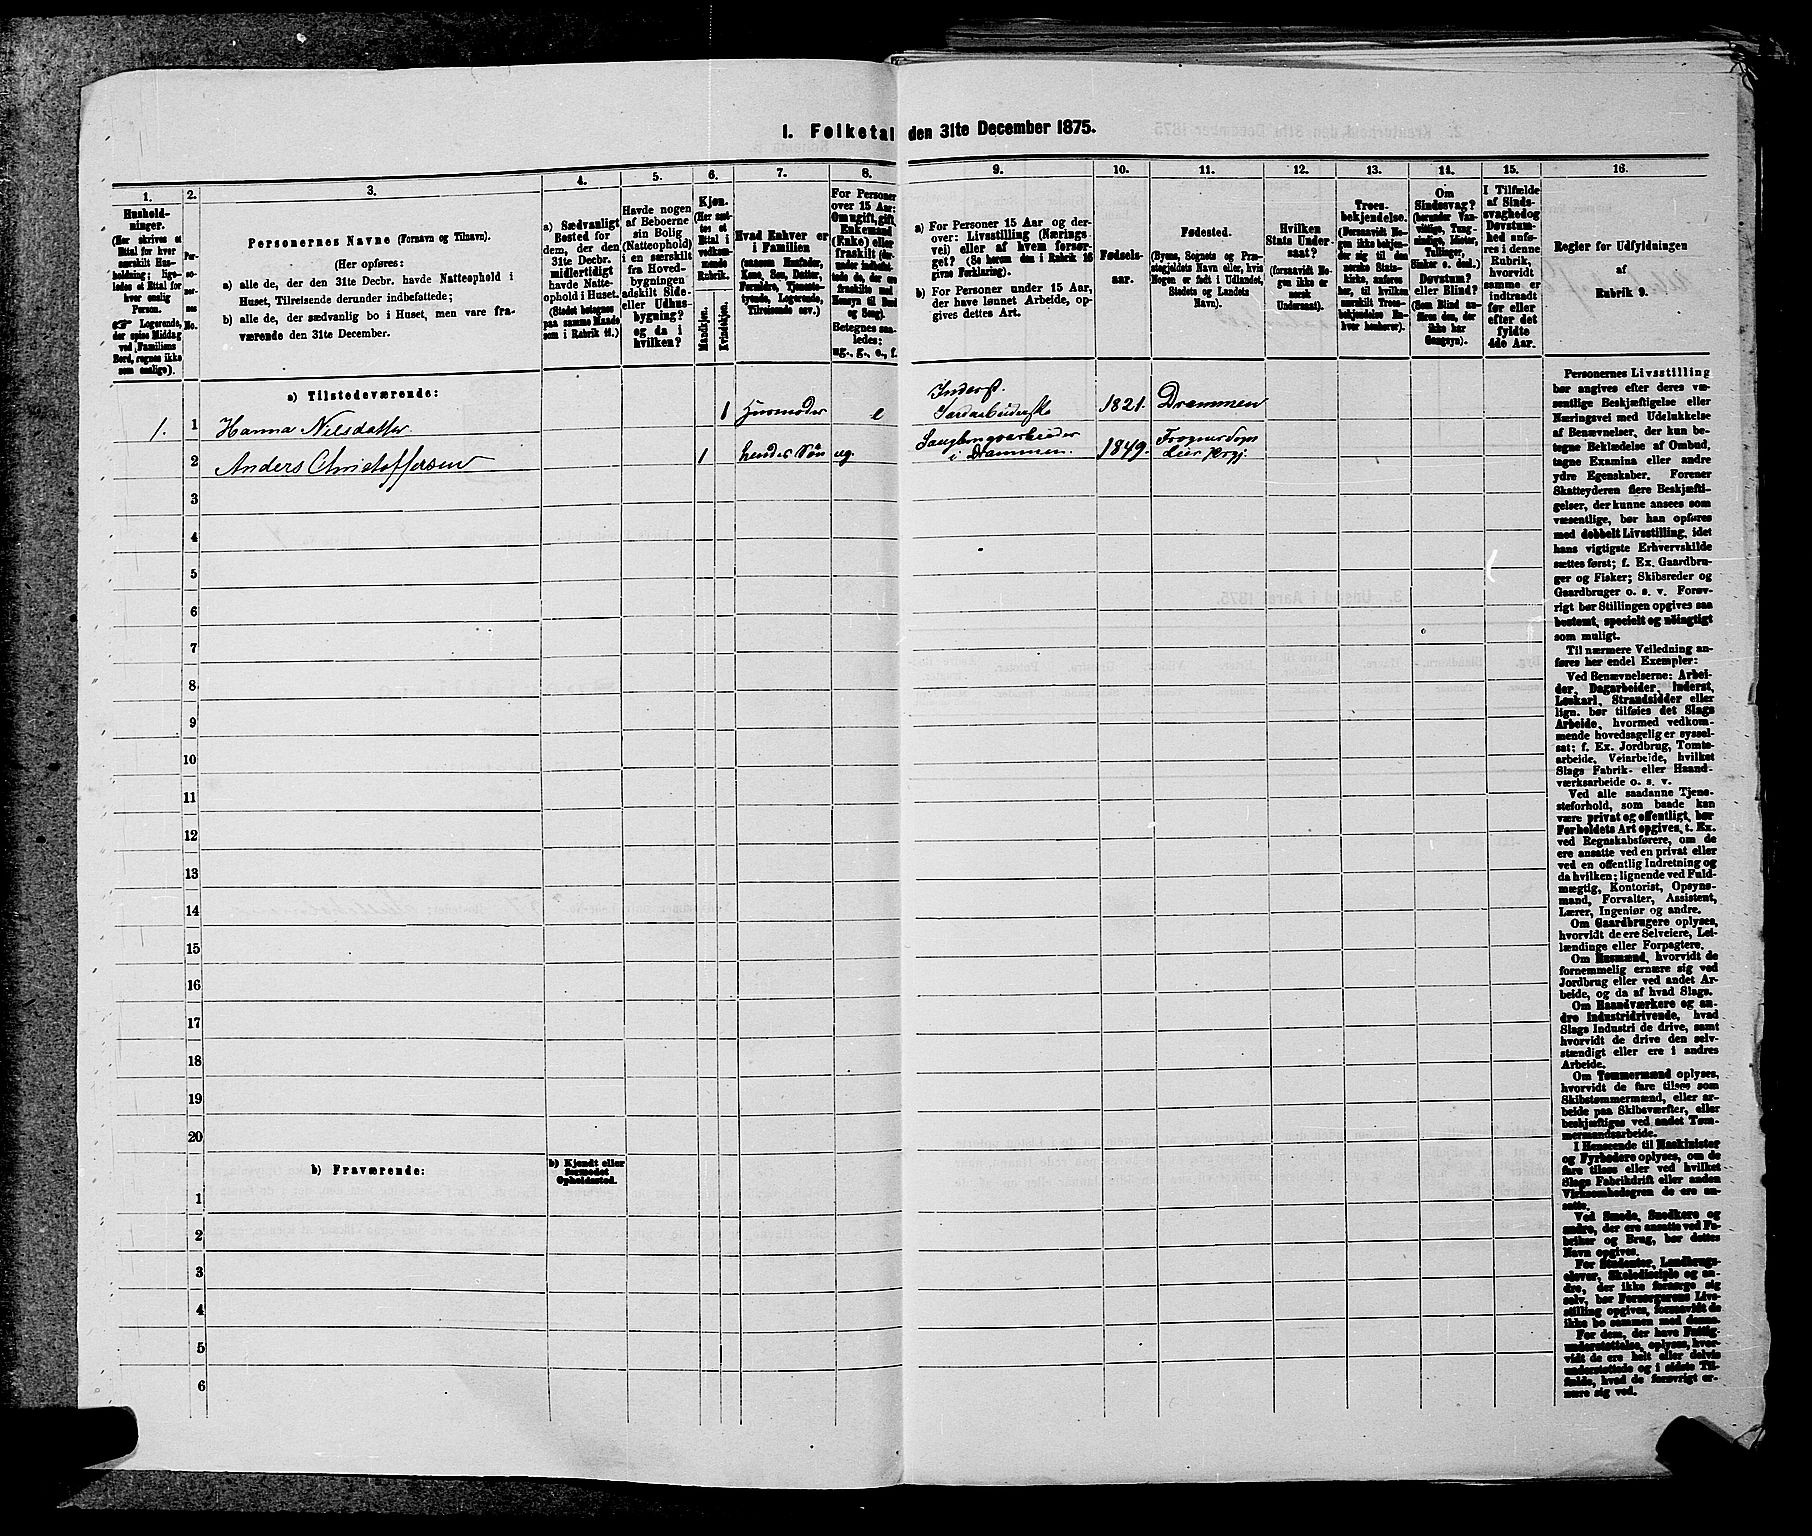 I. Folketal den 31te December 1875.
1.
2.
3.
4.
5.
6.
7.
8.
9.
10.
11.
12.
13.
14.
15.
16.
Hushold-
ninger.
(Her skrives et
Ettal for hver
særskilt Hus-
holdning; lige-
ledes et Ettal for
hver enslig
Person.
☞ Logerende,
der spise Middag
ved Familiens
Bord, regnes ikke
som enslige).
Per-
so-
ner-
nes
No.
Personernes Navne (Fornavn og Tilnavn).
(Her opføres:
a) alle de, der den 31te Decbr. havde Natteophold i
Huset, Tilreisende derunder indbefattede;
b) alle de, der sædvanlig bo i Huset, men vare fra-
værende den 31te December.
a) Sædvanligt
Bosted for
dem, der den
31te Decbr.
midlertidigt
havde Natte-
ophold i Huset.
(Stedet betegnes
paa samme Maade
som i Rubrik 11.)
Havde nogen
af Beboerne
sin Bolig
(Natteophold)
i en særskilt
fra Hoved-
bygningen
adskilt Side-
eller Udhus-
bygning?
og da i
hvilken?
Kjøn.
(Her sæt-
tes et
Ettal i
vedkom-
mende
Rubrik.
Mandkjøn.
Kvindekjøn.
Hvad Enhver er
i Familien
(saasom Husfader,
Kone, Søn, Datter,
Forældre, Tjeneste-
tyende, Logerende,
Tilreisende osv.)
For Personer
over 15 Aar:
Om ugift, gift,
Enkemand
(Enke) eller
fraskilt
Betegnes saa-
ledes:
ug., g., e., f.
a) For Personer 15 Aar og der-
over: Livsstilling (Nærings-
vei) eller af hvem forsør-
get? (Se herom den i Rubrik 16
givne Forklaring).
b) For Personer under 15 Aar,
der have lønnet Arbeide, op-
gives dettes Art.
Fødsels-
aar.
Fødested.
(Byens, Sognets og Præ-
stegjeldets Navn eller, hvis
Nogen er født i Udlandet,
Stedets og Landets
Navn).
Hvilken
Stats Under-
saat?
(forsaavidt No-
gen ikke er
norsk
Undersaat).
Troes-
bekjendelse.
(Forsaavidt No-
gen ikke bekjen-
der sig til den
norske Stats-
kirke, anføres
her, til hvilken
Troes-
bekjendelse En-
hver henhører).
Om
Sindssvag?
(herunder Van-
vittige, Tung-
sindige, Idioter,
Tullinger,
Sinker o. desl.)
Døvstum?
eller Blind?
(Som Blind an-
føres den, der
ikke har
Gangsyn).
I Tilfælde
af Sinds-
svaghed og
Døvstum-
hed anfø-
res i denne
Rubrik,
hvorvidt
samme er
indtraadt
før eller
efter det
fyldte
4de Aar.
Regler for Udfyldningen
af
Rubrik 9.
a) Tilstedeværende:
1. 1 Hanna Nilsdatter 1 Husmoder e Inderst. Jordarbeiderske 1821. Drammen
2 Anders Christoffersen 1 hendes Søn ug. Saugbrugsarbeider i Drammen. 1849. Frogner Sogn Lier Prgj.
3
4
5
6
7
8
9
10
11
12
13
14
15
16
17
18
19
20
b) Fraværende:
b) Kjendt eller
formodet
Opholdssted.
1
2
3
4
5
6
Personernes Livsstilling
bør angives efter deres væ-
sentlige Beskjæftigelse eller
Næringsvei med Udelukkelse
af Benævnelser, der kun be-
tegne Beklædelse af Ombud,
tagne Examina eller andre
ydre Egenskaber. Forener
Skatteyderen flere Beskjæfti-
gelser, der kunne ansees som
væsentlige, bør han opføres
med dobbelt Livsstilling, idet
hans vigtigste Erhvervskilde
sættes først; f. Ex. Gaardbru-
ger og Fisker; Skibsreder og
Gaardbruger o. s. v. Forøv-
rigt bør Stillingen opgives saa
bestemt, specielt og nøiagtigt
som muligt.
Til nærmere Veiledning an-
føres her endel Exempler:
Ved Benævnelserne: Arbei-
der, Dagarbeider, Inderst,
Løskarl, Strandsidder eller
lign. bør tilføies det Slags
Arbeide, hvormed vedkom-
mende hovedsagelig er syssel-
sat; f. Ex. Jordbrug, Tomte-
arbeide, Veiarbeide, hvilket
Slags Fabrik- eller Haand-
værksarbeide o. s. v.
Ved alle saadanne Tjene-
steforhold, som baade kan
være privat og offentligt, bør
Forholdets Art opgives, t. Ex.
ved Regnskabsførere, om de
ere ansatte ved en privat eller
ved en offentlig Indretning og
da hvilken; lignende ved Fuld-
mægtig, Kontorist, Opsyns-
mand, Forvalter, Assistent,
Lærer, Ingeniør og andre.
Om Gaardbrugere oplyses,
hvorvidt de ere Selveiere, Lei-
lændinge eller Forpagtere.
Om Husmænd, hvorvidt de
fornemmelig ernære sig ved
Jordbrug eller ved andet Ar-
beide, og da af hvad Slags.
Om Haandværkere og an-
dre Industridrivende, hvad
Slags Industri de drive, samt
hvorvidt de drive den selv-
stændigt eller ere i andres
Arbeide.
Om Tømmermænd oplyses,
hvorvidt de fare tilsøs som
Skibstømmermænd, eller ar-
beide paa Skibsværfter, eller
beskjæftiges ved andet Tøm-
mermandsarbeide.
I Henseende til Maskinister
og Fyrbødere oplyses, om de
fare tilsøs eller ved hvilket
Slags Fabrikdrift eller anden
Virksomhedsgren de ere an-
satte.
Ved Smede, Snedkere og
andre, der ere ansatte ved Fa-
briker og Brug, bør dettes
Navn opgives.
For Studenter, Landbrugs-
elever, Skoledisciple og an-
dre, der ikke forsørge sig
selv, bør Forsørgerens Livs-
stilling opgives, forsaavidt de
ikke bo sammen med denne.
For dem, der have Fattig-
understøttelse, oplyses, hvor-
vidt de ere helt eller delvis
understøttede og i sidste Til-
fælde, hvad de forøvrigt er-
nære sig ved.